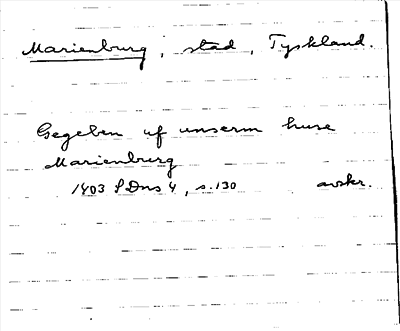 Marienburg, stad, Tyskland.
Gegeben uf unserm huse
Marienburg
1403 SDns 4, s. 130 avskr.